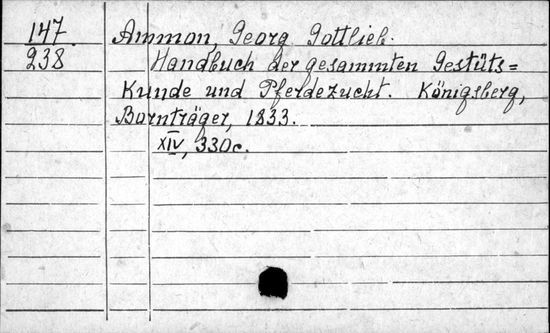 147 Ammon, Georg Gottlieb.
238 Handbuch der gesammten Gestüts=
Kunde und Pferdezucht. Königsberg,
Bornträger, 1833.
XIV, 330c.